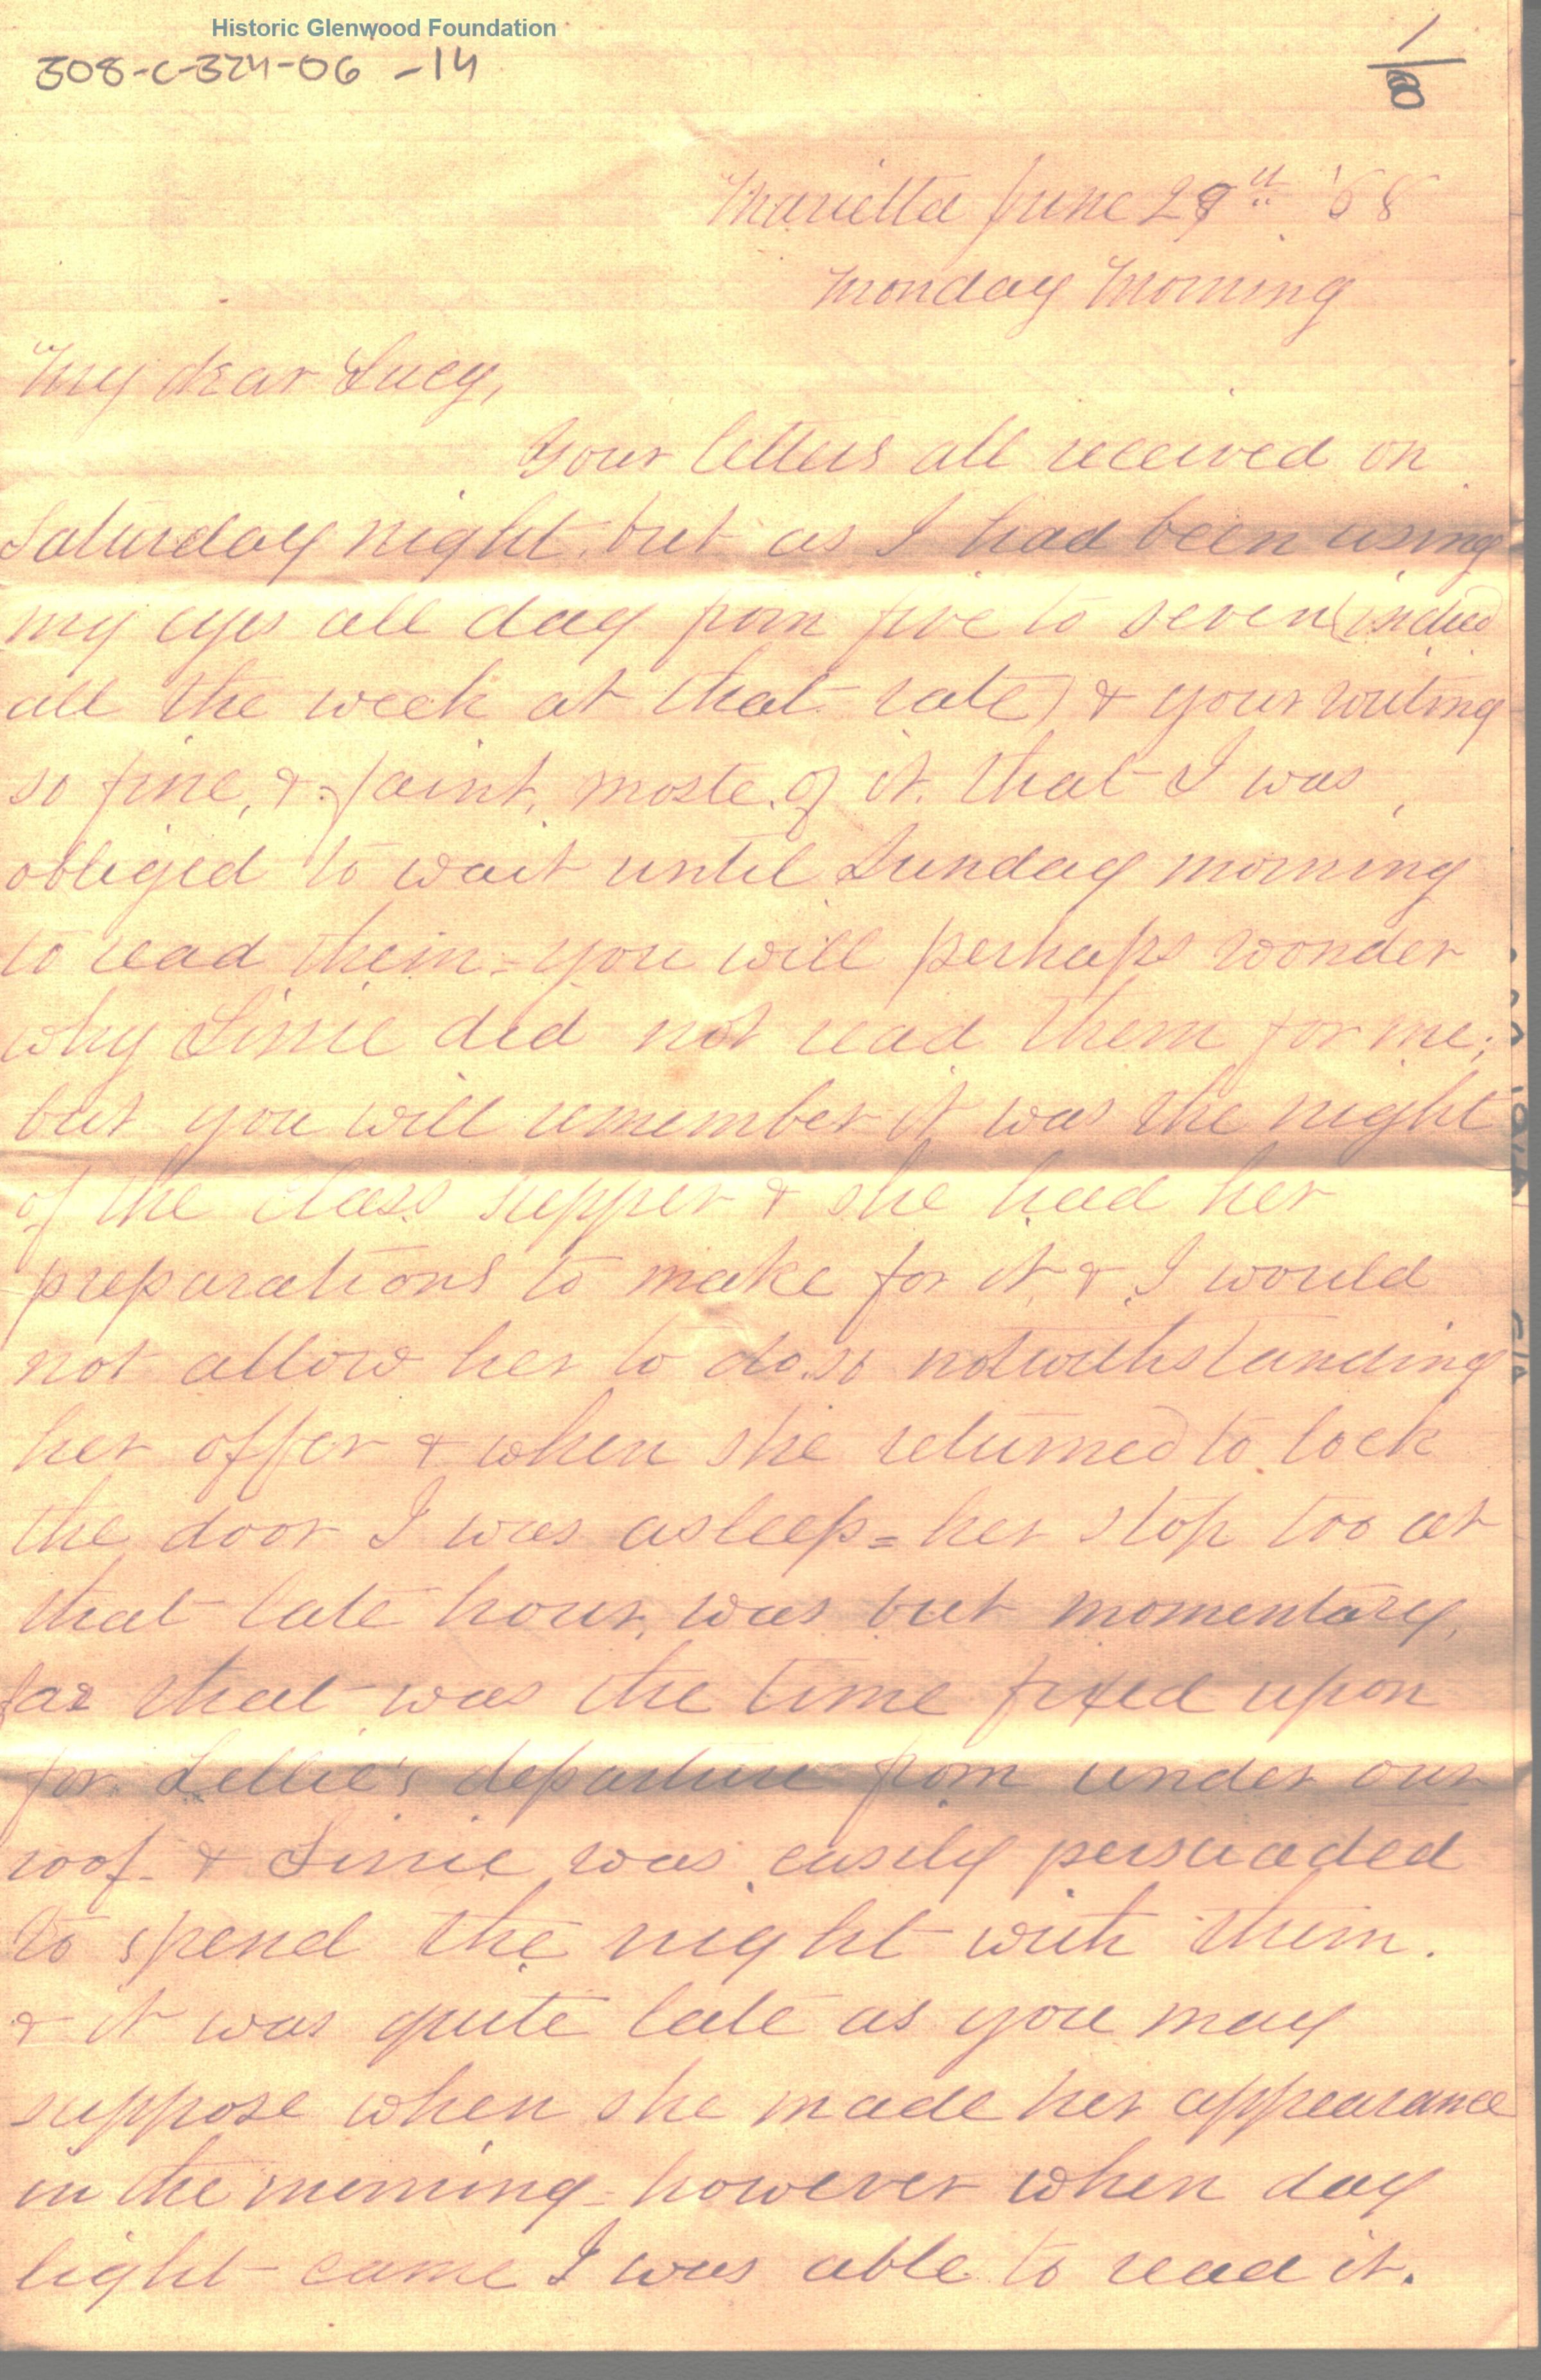 Historic Glenwood Foundation
308-C-324-06 -14
1/8
Marietta June 29th '68
Monday Morning
My dear Lucy,
Your letters all received on
Saturday night, but as I had been using
my eyes all day from five to seven (indeed
all the week at that rate) & your writing
so fine, & faint, moste of it, that I was
obliged to wait until Sunday morning
to read them = you will perhaps wonder
why Linie did not read them for me;
but you will remember it was the night
of the class supper & she had her
preparations to make for it, & I would
not allow her to do so notwithstanding
her offer & when she returned to lock
the door I was asleep = her stop too at
that late hour, was but momentary,
for that was the time fixed upon
for Lellie's departure from under our
roof - & Linie was easily persuaded
to spend the night with them.
& it was quite late as you may
suppose when she made her appearance
in the morning - however when day
light came I was able to read it.